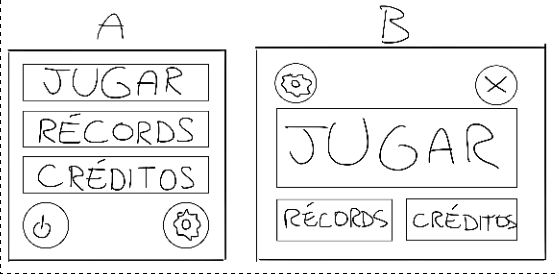 A
JUGAR
RÉCORDS
CRÉDITOS
B
JUGAR
RÉCORDS
CRÉDITOS